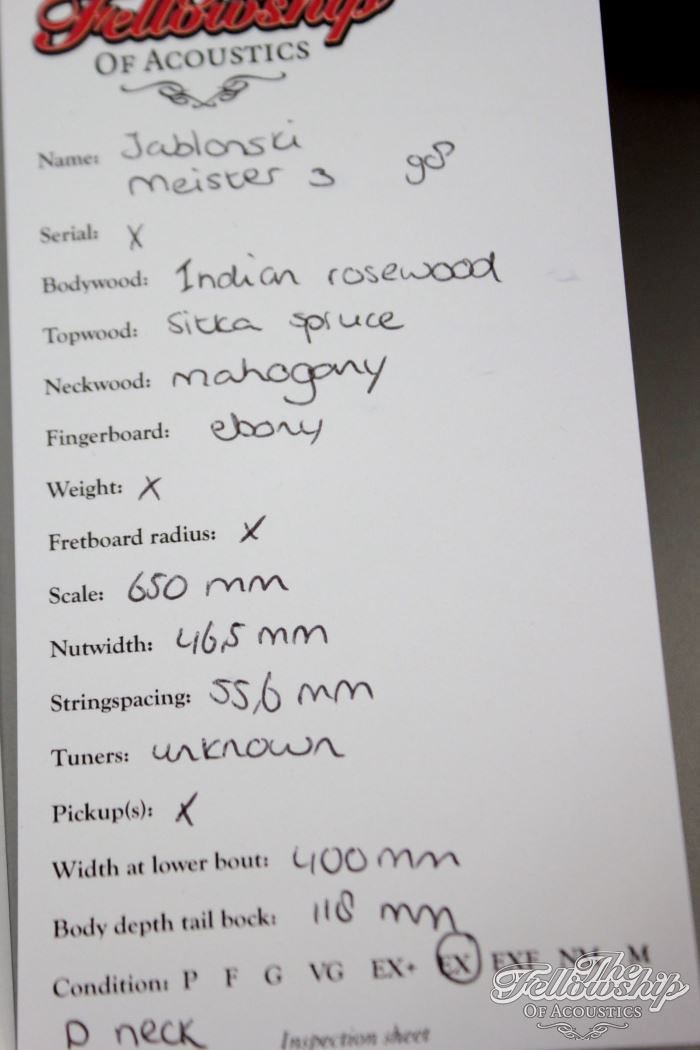 Fellowship
OF ACOUSTICS
Name: Jablonski
Meister 3
Serial: X
Bodywood: Indian rosewood
Topwood: Sitka spruce
Neckwood: mahogany
Fingerboard: ebony
Weight: X
Fretboard radius: X
Scale: 650 mm
Nutwidth: 46,5 mm
Stringspacing: 55,6 mm
Tuners: unknown
Pickup(s): X
Width at lower bout: 400 mm
Body depth tail bock: 118 mm
Condition: P F G VG EX+ EX EXF NM M
D neck
Inspection sheet
The
Fellowship
OF ACOUSTICS